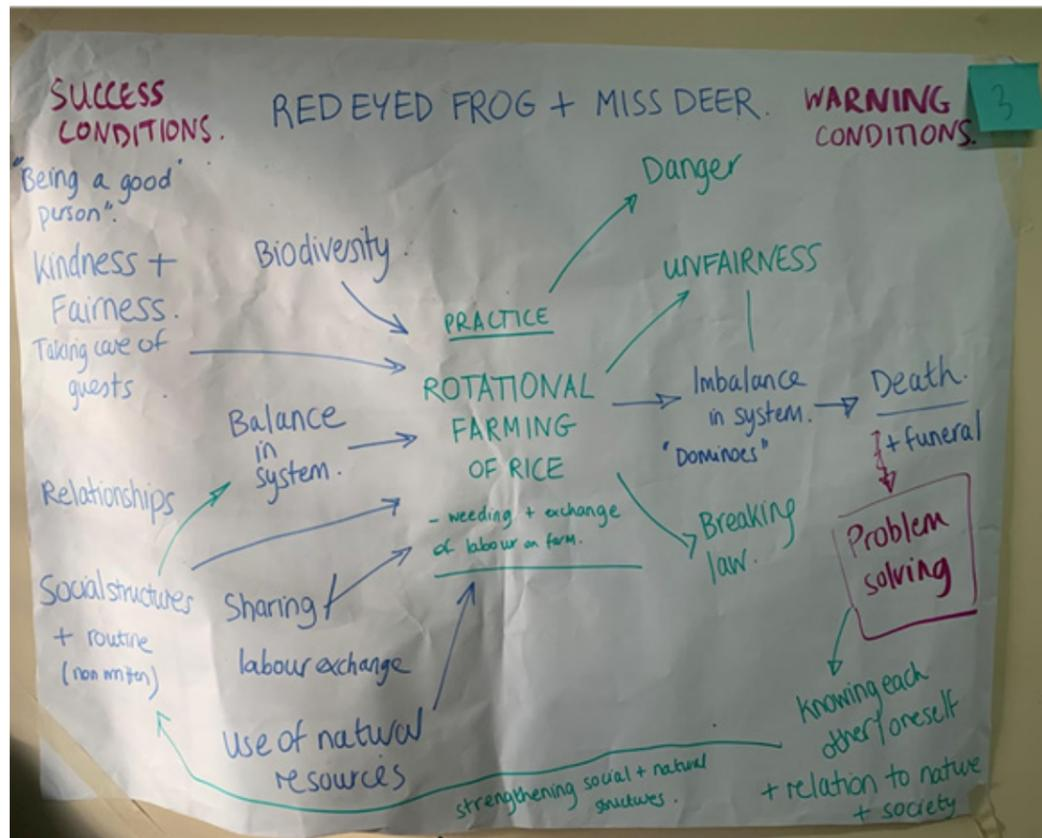 SUCCESS
CONDITIONS.
RED EYED FROG + MISS DEER.
WARNING
CONDITIONS.
3
"Being a good"
person".
Kindness +
Fairness.
Taking care of
guests
Relationships
Social structures
+ routine
(non written)
Biodiversity.
Balance
in
system.
Sharing /
labour exchange
Use of natural
resources
PRACTICE
ROTATIONAL
FARMING
OF RICE
- weeding + exchange
of labour on farm.
Danger
UNFAIRNESS
Imbalance
in system.
"DOMINOES"
Breaking
law.
Death.
+ funeral
Problem
solving
Knowing each
other/oneself
+ relation to nature
+ society
strengthening social + natural
structures.